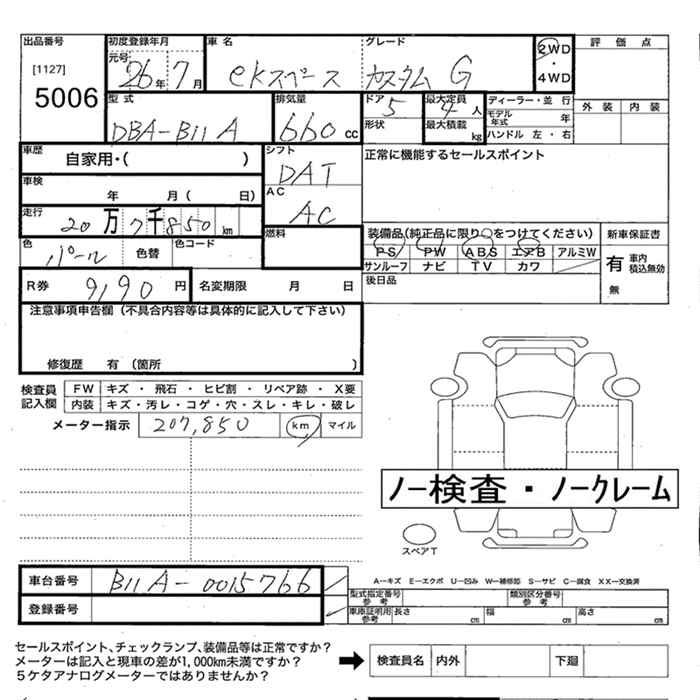 出品番号 初度登録年月 車名 グレード 2WD 評価点
[1127] 元号 26年7月 ekスペース カスタム G ・
5006 4WD
型式 排気量 ドア 5 最大定員 4人 ディーラー・並行 外装 内装
DBA-B11A 660cc 形状 最大積載 kg モデル年式 年
ハンドル 左・右
車歴 自家用・( ) シフト 正常に機能するセールスポイント
DAT
車検 年 月( 日) AC
AC
走行 20万7千850km 燃料 装備品(純正品に限り○をつけてください) 新車保証書
色 パール 色替 色コード PS PW ABS エアB アルミW 有 車内積込無効
サンルーフ ナビ TV カワ 無
R券 9,190円 名変期限 月 日 後日品
注意事項申告欄(不具合内容等は具体的に記入して下さい)
修復歴 有(箇所 )
検査員 FW キズ・飛石・ヒビ割・リペア跡・X要
記入欄 内装 キズ・汚レ・コゲ・穴・スレ・キレ・破レ
メーター指示 207,850 km マイル
ノー検査・ノークレーム
スペアT
車台番号 B11A-0015766 A－キズ E－エクボ U－凹み W－補修跡 S－サビ C－腐食 XX－交換済
型式指定番号 参考 類別区分番号 参考
登録番号 車庫証明用 参考 長さ cm 幅 cm 高さ cm
セールスポイント、チェックランプ、装備品等は正常ですか?
メーターは記入と現車の差が1,000km未満ですか? 検査員名 内外 下廻
5ケタアナログメーターではありませんか?